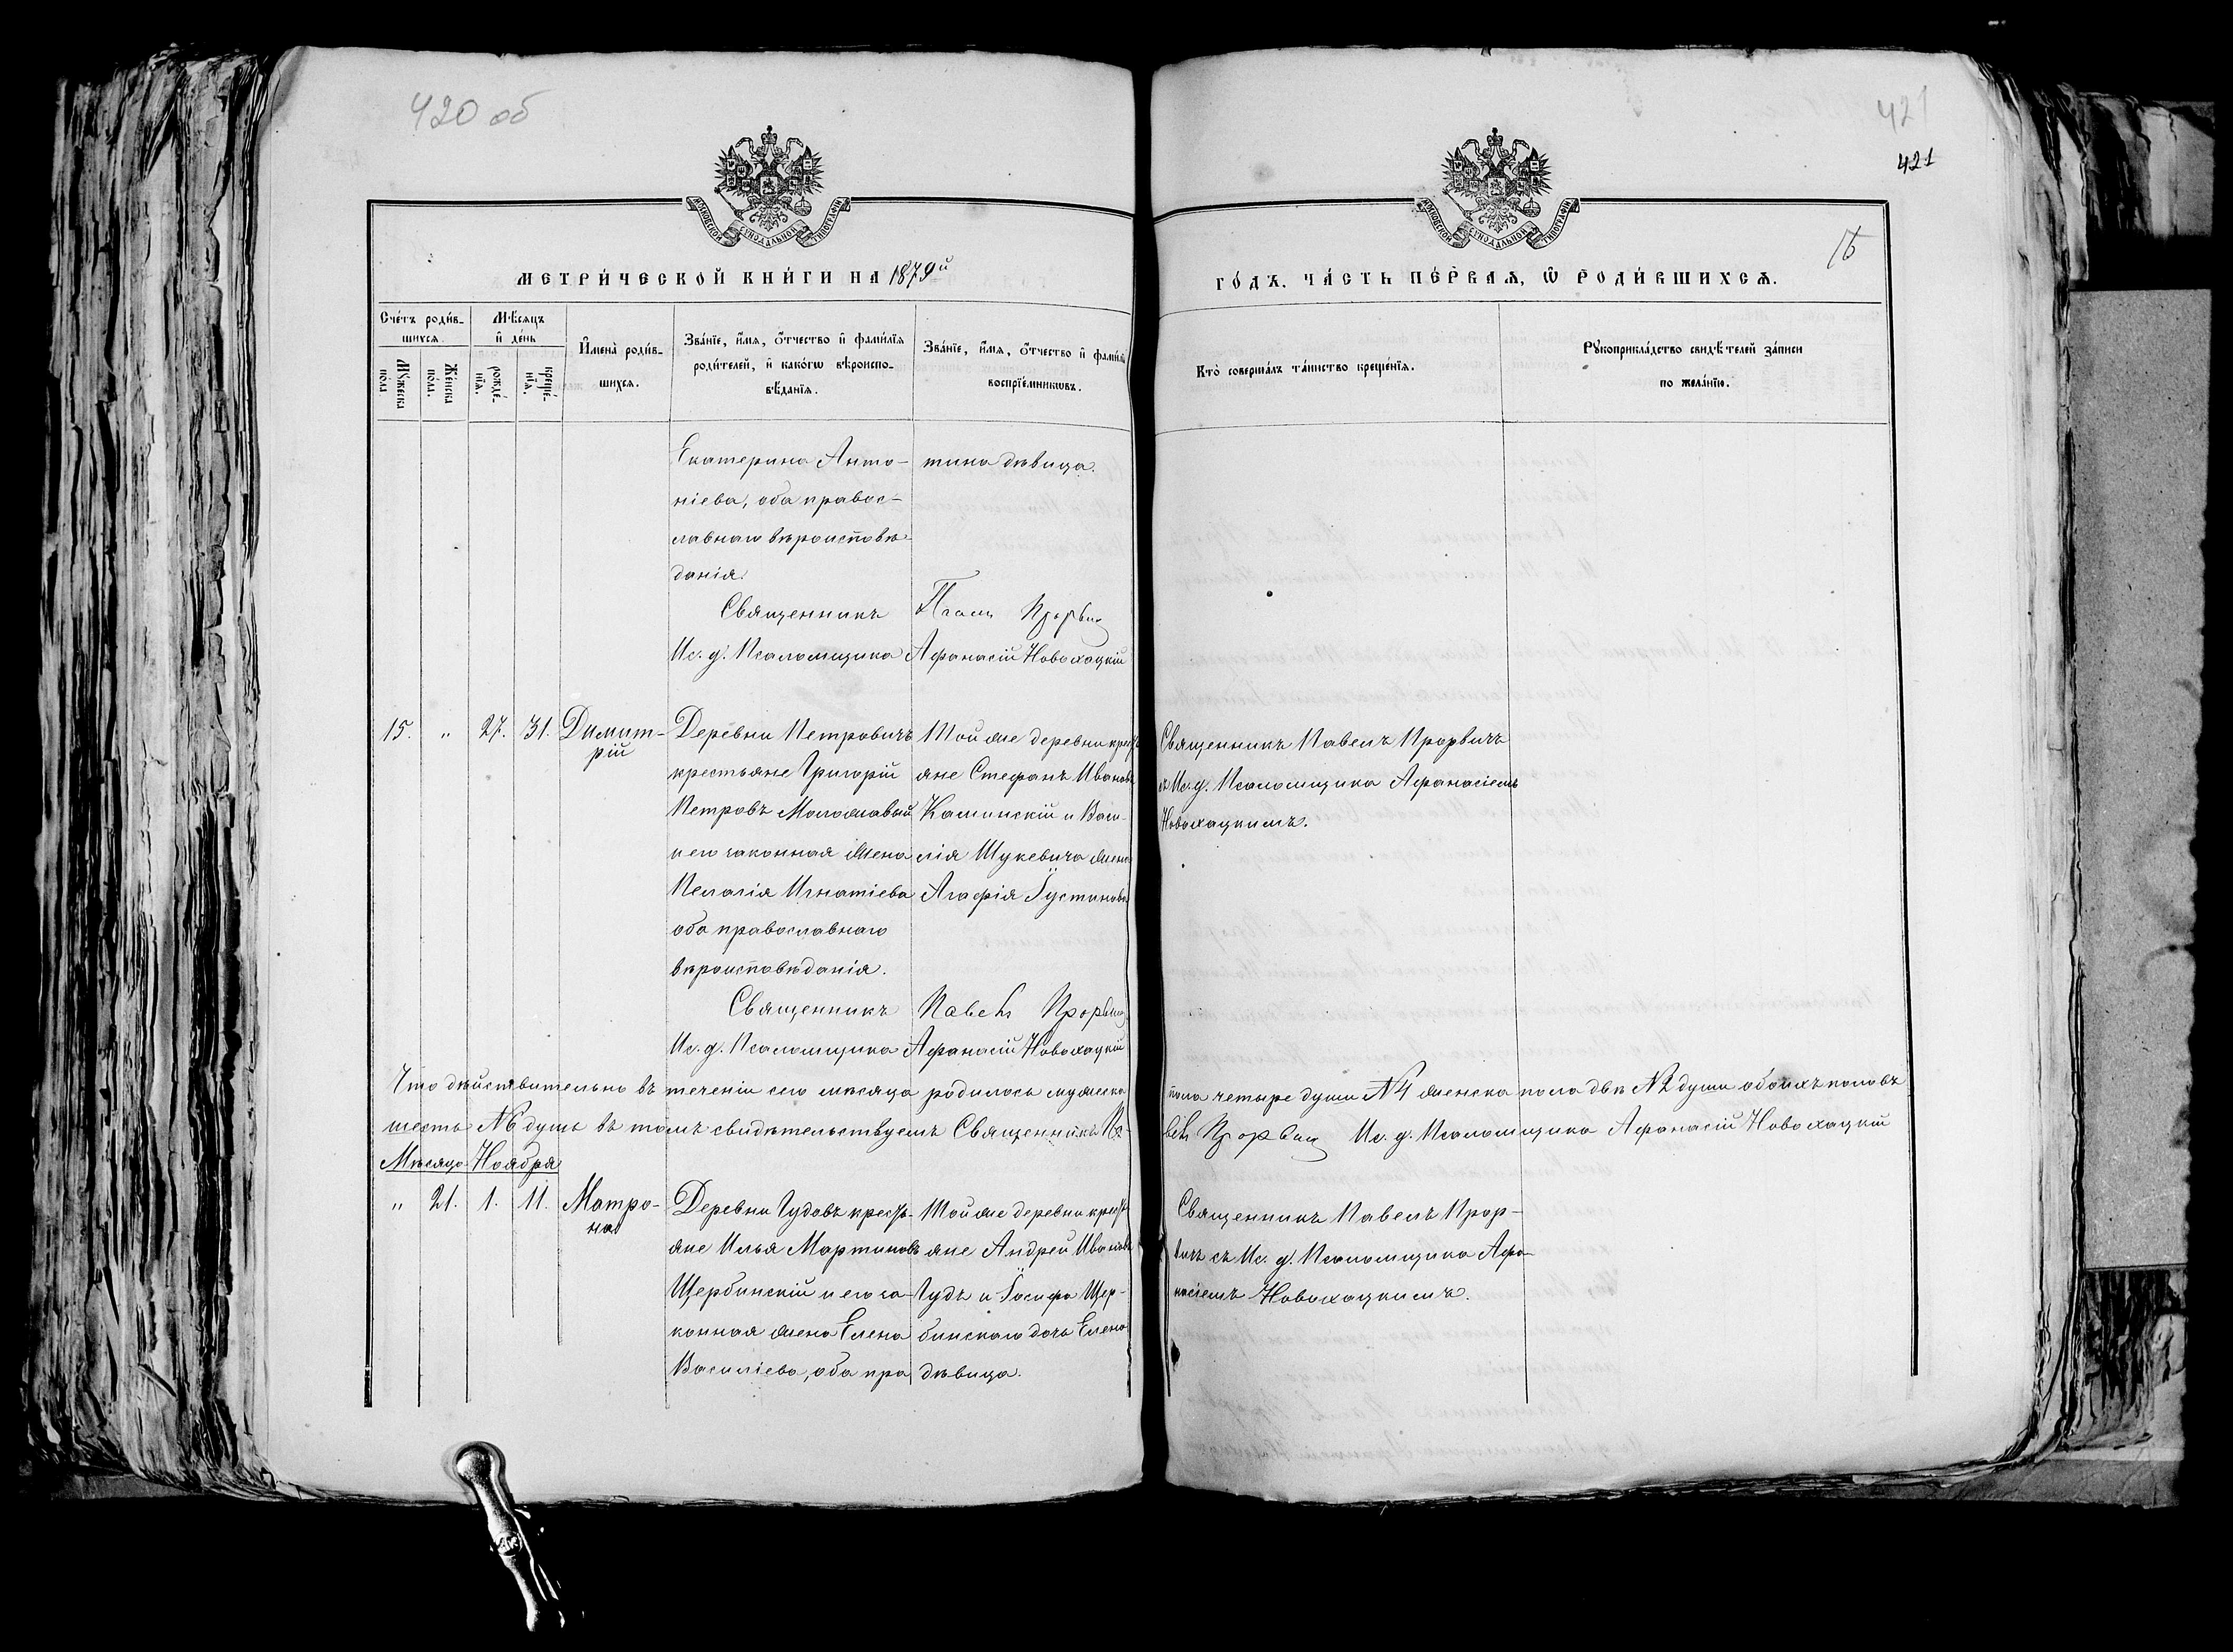 420 об
421
421
15
МОСКОВСКОЙ СѴНОДАЛЬНОЙ ТИПОГРАФІИ
МОСКОВСКОЙ СѴНОДАЛЬНОЙ ТИПОГРАФІИ
МЕТРИ́ЧЕСКОЙ КНИ́ГИ НА 1879й
ГО́ДЪ. ЧА́СТЬ ПЕ́РВАЯ, Ѡ҆ РОДИ́ВШИХСѦ.
Сче́тъ роди́в-
шихся.
Му́жеска
пола
Же́нска
по́ла.
Мѣ́сяцъ
и҆ де́нь
рожде́-
нїя.
креще́-
нїя.
И҆мена̀ роди́в-
шихся.
Зва́нїе, и҆́мя, о҆́тчество и҆ фами́лїя
роди́телей, и҆ како́гѡ вѣроиспо-
вѣ́данїя.
Зва́нїе, и҆́мя, о҆́тчество и҆ фами́лїя
воспрїе́мникѡвъ.
Кто̀ соверша́лъ та́инство креще́нїя.
Рꙋкоприкла́дство свидѣ́телей за́писи
по жела́нїю.
Екатерина Анто-
ніева, оба правос-
лавнаго вѣроисповѣ-
данія.
тина дѣвица.
Священникъ Павелъ Прорвич
Ис. д. Псаломщика Афанасій Новохацкій
15. " 27. 31. Димит-
рій
Деревни Петровичъ
крестьяне Григорій
Петровъ Моложавый
и его законная жена
Пелагія Игнатіева
оба православнаго
вѣроисповѣданія.
Той же деревни кресть
яне Стефанъ Ивановъ
Каминскій и Васи-
лія Шукевича жена
Агафія Іустинова
Священникъ Павелъ Прорвичъ
съ Ис. д. Псаломщика Афанасіемъ
Новохацкимъ.
Священникъ Павелъ Прорвич
Ис. д. Псаломщика Афанасій Новохацкій
Что дѣйствительно въ теченіи сего мѣсяца родилось мужеска пола четыре души №4 женска пола двѣ №2 души обоихъ половъ
шесть №6 душъ въ томъ свидѣтельствуемъ Священникъ Па-велъ Прорвич Ис. д. Псаломщика Афанасій Новохацкій
Мѣсяцъ Ноябрь
" 21. 1. 11. Матро-
на
Деревни Гудовъ кресть-
яне Илья Мартиновъ
Щербинскій и его за-
конная жена Елена
Василіева, оба пра
Той же деревни кресть
яне Андрей Ивановъ
Гудъ и Іосифа Щер-
бинскаго дочь Елена
дѣвица.
Священникъ Павелъ Прор-
вичъ съ Ис. д. Псаломщика Афа-
насіемъ Новохацкимъ.